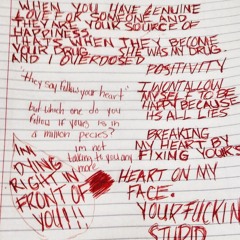 WHEN YOU HAVE GENUINE
LOVE FOR SOMEONE AND
THEY ARE YOUR SOURCE OF
HAPPINESS.
THAT'S WHEN THEY BECOME
YOUR DRUG. HE WAS MY DRUG.
AND I OVERDOSED
POSITIVITY
"they say follow your heart"
but which one do you
follow if yours is in
a million pecies?
I WONT ALLOW
MYSELF TO BE
HAPPY BECAUSE
ITS ALL LIES
BREAKING
MY HEART BY
FIXING YOURS
im not
talking to you any
more
IM
DYING
RIGHT IN
FRONT OF
YOU!!!
HEART ON MY
FACE.
YOUR FUCKIN
STUPID